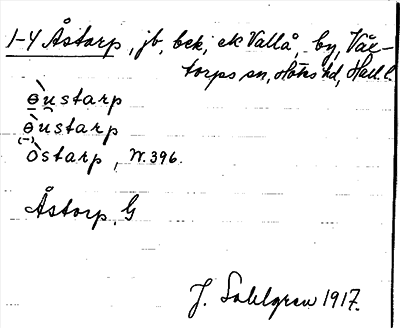 1-4 Åstarp, jb, bek; ek Vallå, by, Våx-
torps sn, Höks hd, Hall l.
ɵ̀u̯starp
ɵ̀ustarp
(-)
òstarp, N. 396.
Åstorp, G
J. Sahlgren 1917.